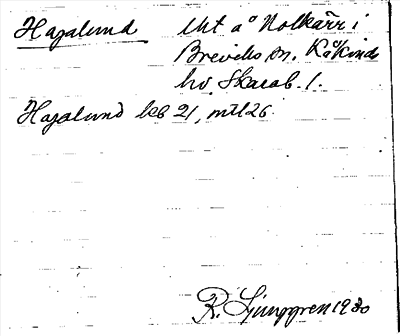 Hagalund lht å Nolkärr i
Breviks sn. Kåkinds
hd. Skarab. l.
Hagalund kb 21, mtl 26.
R. Ljunggren 1930